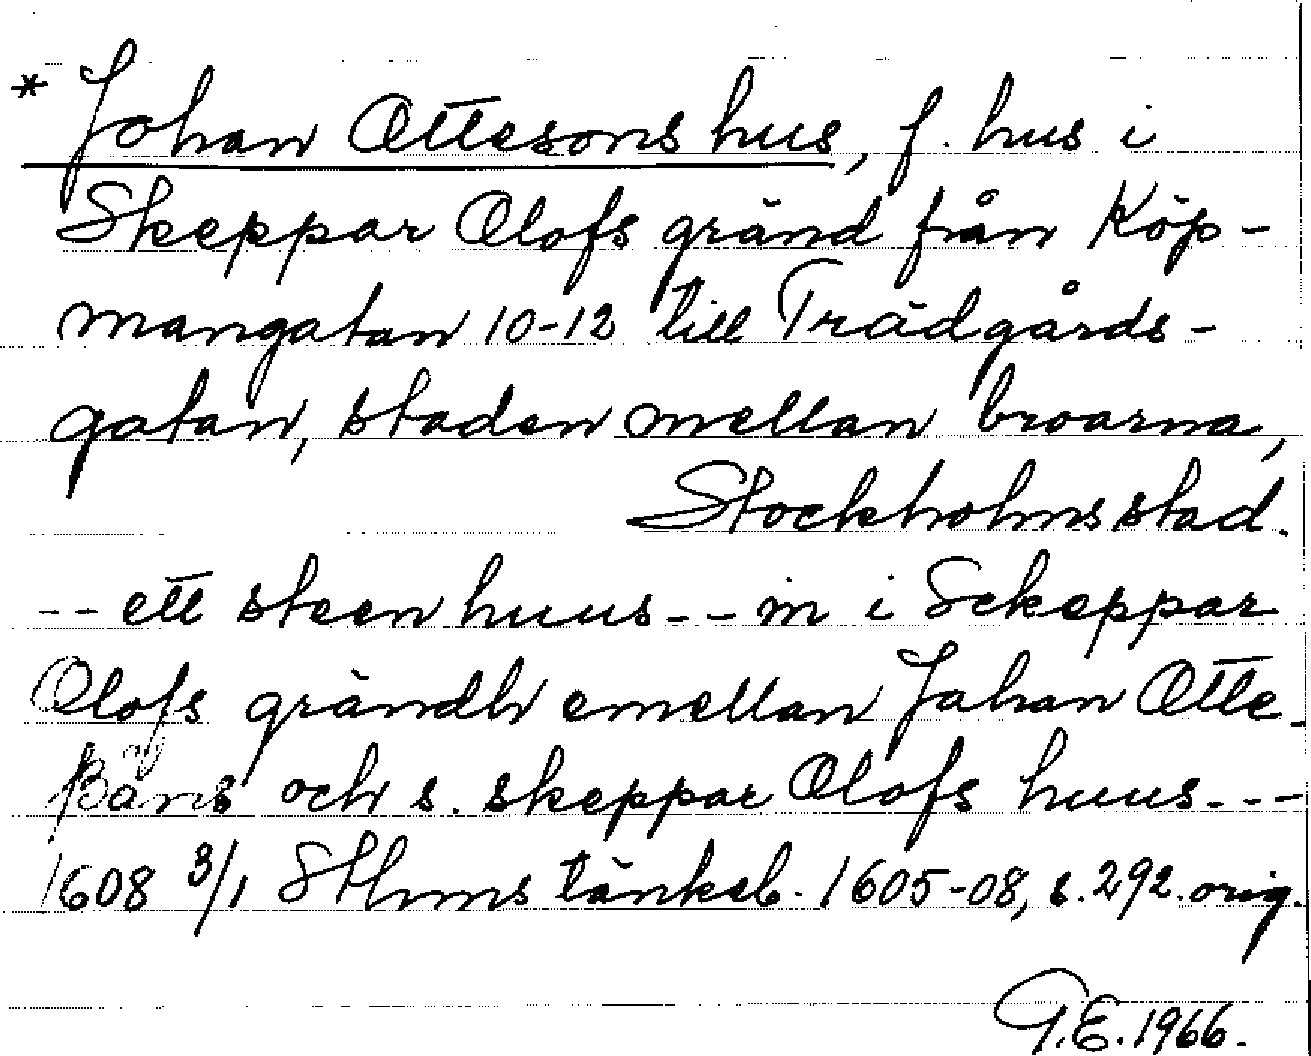 * Johan Ottesons hus, f. hus i
Skeppar Olofs gränd från Köp-
mangatan 10-12 till Trädgårds-
gatan, staden mellan broarna,
Stockholms stad.
-- ett steen huus -- in i Sckeppar
Olofs grändh emellan Johan Otte-
ßåns och s. skeppar Olofs huus ---
1608 3/1 Sthms tänkeb. 1605-08, s. 292. orig.
G.E. 1966.